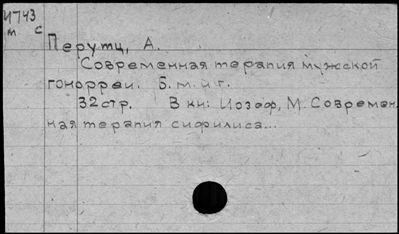 И743
м с
Перутц, А.
Современная терапия мужской
гонорреи. Б. м. и г.
32 стр. В кн: Иозеф, М. Современ.
ная терапия сифилиса...